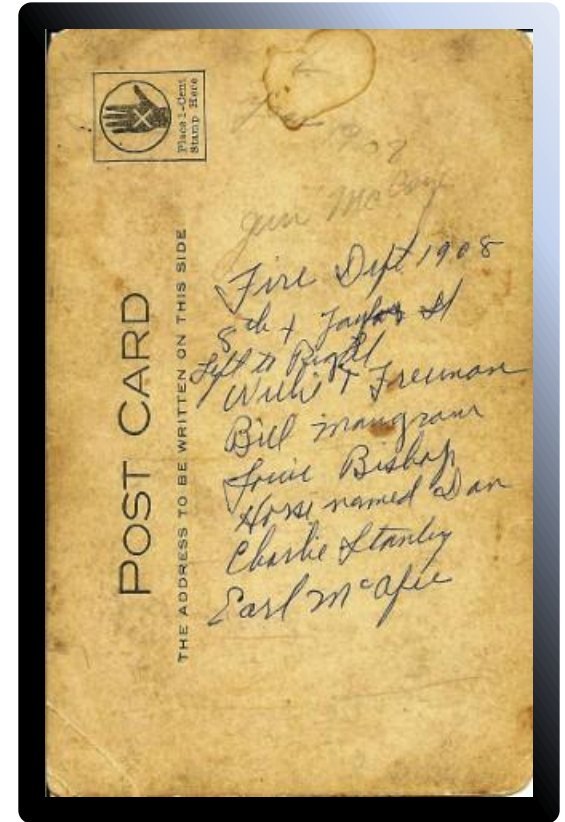 Place 1-Cent
Stamp Here
POST CARD
THE ADDRESS TO BE WRITTEN ON THIS SIDE
1908
Jim McCoy
Fire Dept 1908
8th + Taylor St
Left to Right
Willi T Freeman
Bill mangram
Bishop
Horse named Dan
Charlie Stanley
Earl McAfee